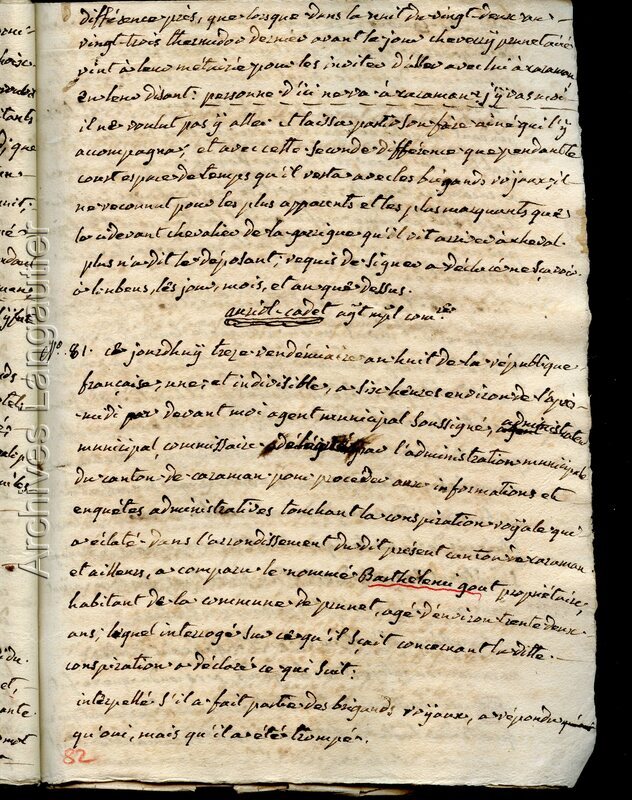 différence près, que lorsque dans la nuit du vingt-deux au
vingt-trois thermidor dernier avant le jour cheverry prunetairé
vint à leur métairie pour les inviter d'aller avec lui à caraman
en leur disant: personne d'ici ne va à caraman, j'y vas moi
il ne voulut pas y aller et laissa partir son frère ainé qui l'y
accompagna; et avec cette seconde différence que pendant le
court espace de temps qu'il resta avec les brigands royaux, il
ne reconnut pour les plus apparents et les plus marquants que
le cidevant chevalier de la garrigue qu'il vit arriver à cheval.
plus n'a dit le déposant; requis de signer a déclaré ne sçavoir
à loubens, les jour, mois, et an que dessus.
auriol-cadet agt mpl comre
No. 81. ce jourdhuy treze vendémiaire an huit de la république
française, une, et indivisible, a six heures environ de l'après
-midi par devant moi agent municipal soussigné, administrateur
municipal commissaire délégué par l'administration municipale
du canton de caraman pour procéder aux informations et
enquêtes administratives touchant la conspiration royale qui
a éclaté dans l'arrondissement du dit présent canton de caraman
et ailleurs, a comparu le nommé Barthélemi gout propriétaire,
habitant de la commune de prunet, agé d'environ trente deux
ans; lequel interrogé sur ce qu'il sçait concernant la ditte
conspiration a déclaré ce qui suit.
interpellé s'il a fait partie des brigands royaux, a répondu
qu'oui, mais qu'il a été trompé.
82
Archives Langautier